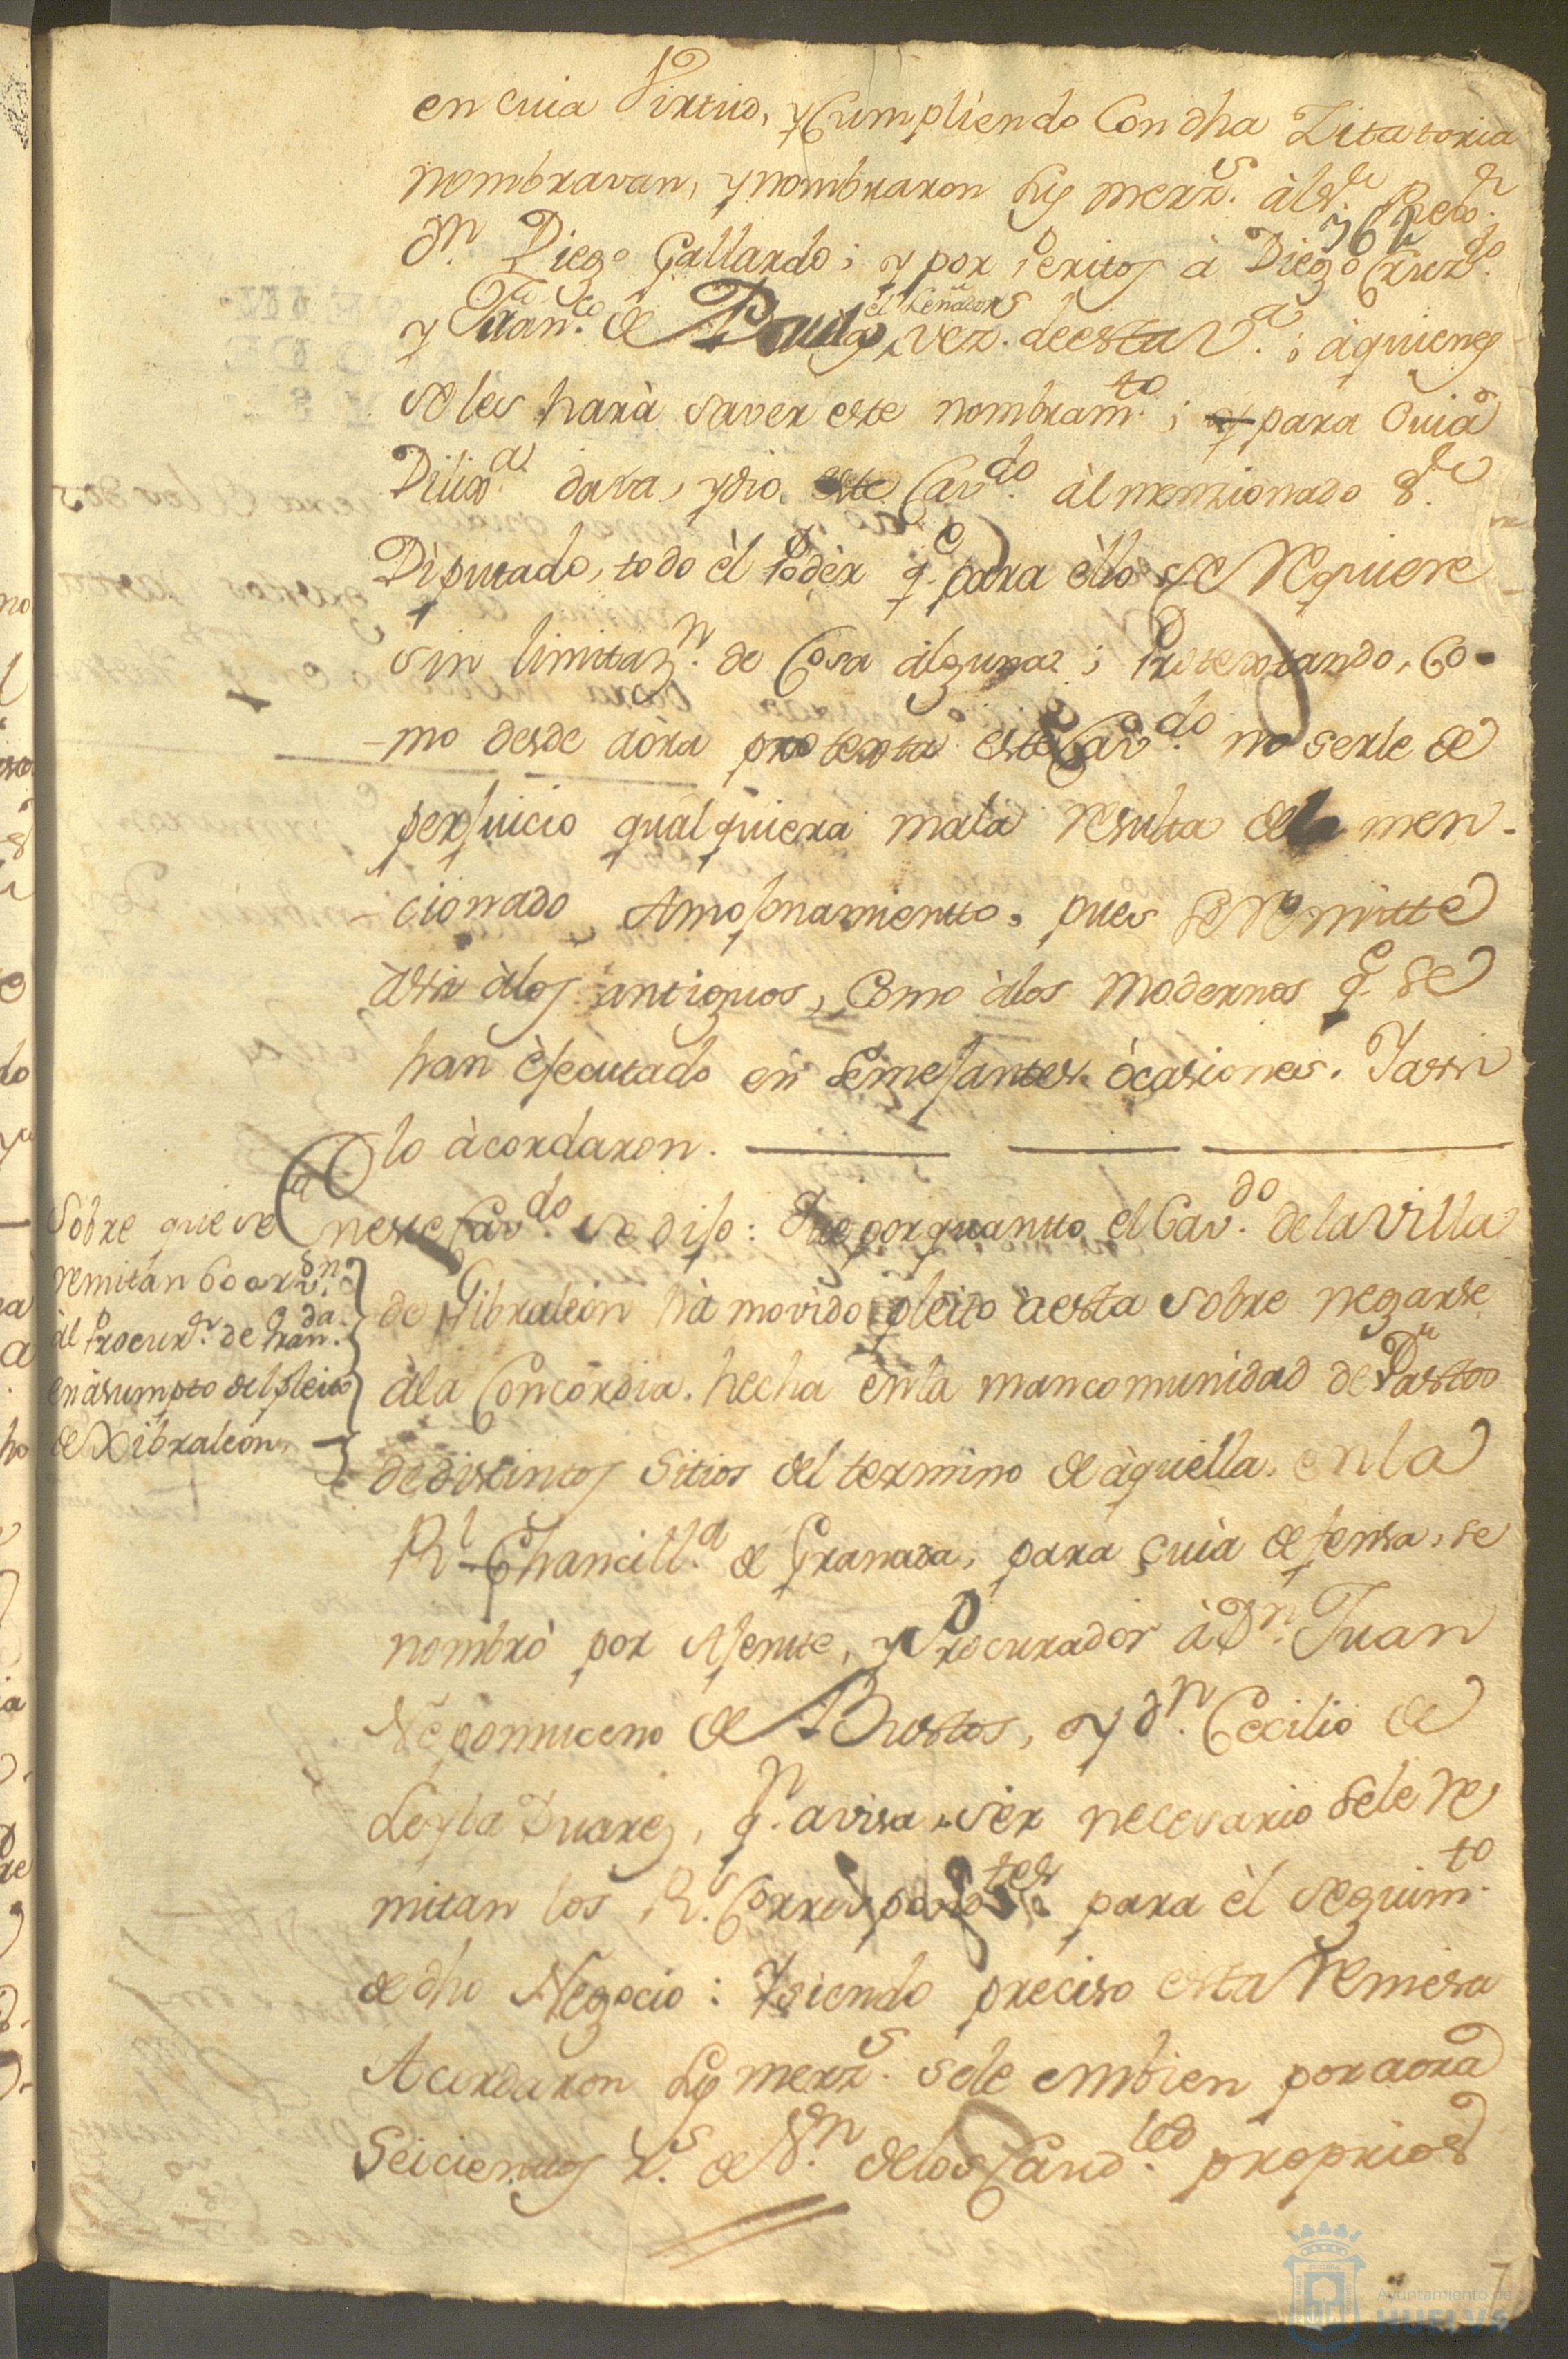 en cuia Virtud, y Cumpliendo Con dha Zitatoria
nombravan, y nombraron Sus merzs. àl Sr. Rexor.
762
Dn. Diego Gallardo; y por Peritos à Diego Cruzdo.
el Senador
y Franco. de Paula, vez. de esta Va.; à quienes
se les harà saver este nombramto.; para Cuia
Dilixa. dava, y dio este Cavdo. àl menzionado Sr.
Diputado, todo èl Podèr qe. para èllo se Requiere
sin limitazn. de Cosa alguna; Protextando, Co-
mo desde aòra protexta este Cavdo. no serle de
perjuicio qualquiera mala resulta del men-
cionado Amojonamientto, pues se Remitte
àsi àlos antiguos, Como àlos modernos qe. se
han èjecutado en Semejantes òcasiones. Y assi
lo àcordaron.
Sobre que se
remitan 600 rs. vn.
àl Procurr. de Granda.
en àsumpto del pleito
de Xibraleon
En este Cavdo. se dijo: Que por quantto el Cavdo. de la Villa
de Gibraleòn hà movido pleito àesta sobre negarse
àla Concordia hecha en la mancomunidad de Pastos
de distintos Sitios del termino de àquella, en la
Rl. Chancilla. de Granada, para cuia defensa, se
nombrò por Ajente, y Procurador à Dn. Juan
Nepomuceno de Bustos, y Dn. Cecilio de
Leyba Duarez, qn. avisa ser necesario se le re
mitan los Rs. Correspondtes. para èl seguimto.
de dho Negocio: Y siendo preciso esta Remesa
Acordaron Sus merzs. se le embien por aora
Seicientos Rs. de Vn. de los Caudles. proprios
Ayuntamiento de
HUELVA